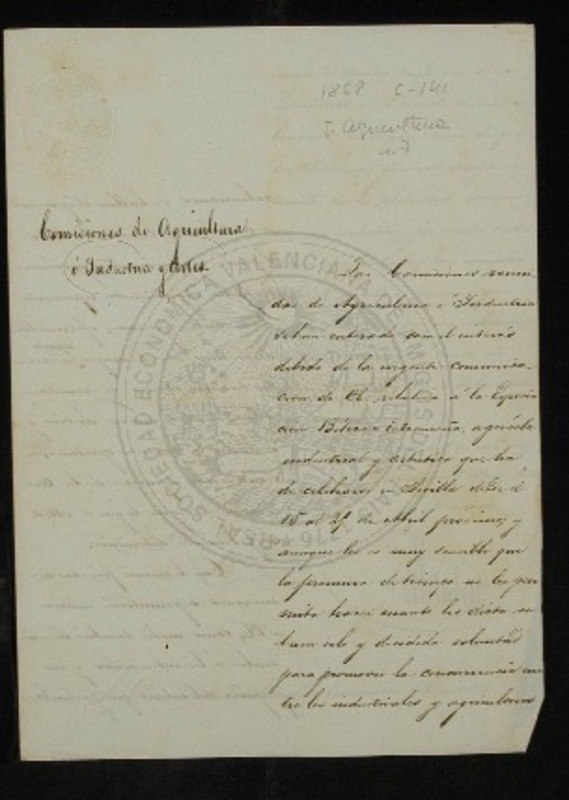 1858 C-141
I Agricultura
n. 7
Comisiones de Agricultura
é Industria y Artes.
Las Comisiones reuni-
das de Agricultura é Industria
se han enterado con el interés
debido de la urgente comunica-
cion de VE. relativa á la Esposi-
cion Bética Estremeña, agrícola
industrial y artistica que ha
de celebrarse en Sevilla desde el
15 al 25 de Abril próximo; y
aunque les es muy sensible que
la premura de tiempo no les per-
mita hacer cuanto les dicta su
buen celo y decidida voluntad
para promover la concurrencia en-
tre los industriales y agricultores
REAL SOCIEDAD ECONOMICA VALENCIANA DE AMIGOS DEL PAIS
1776